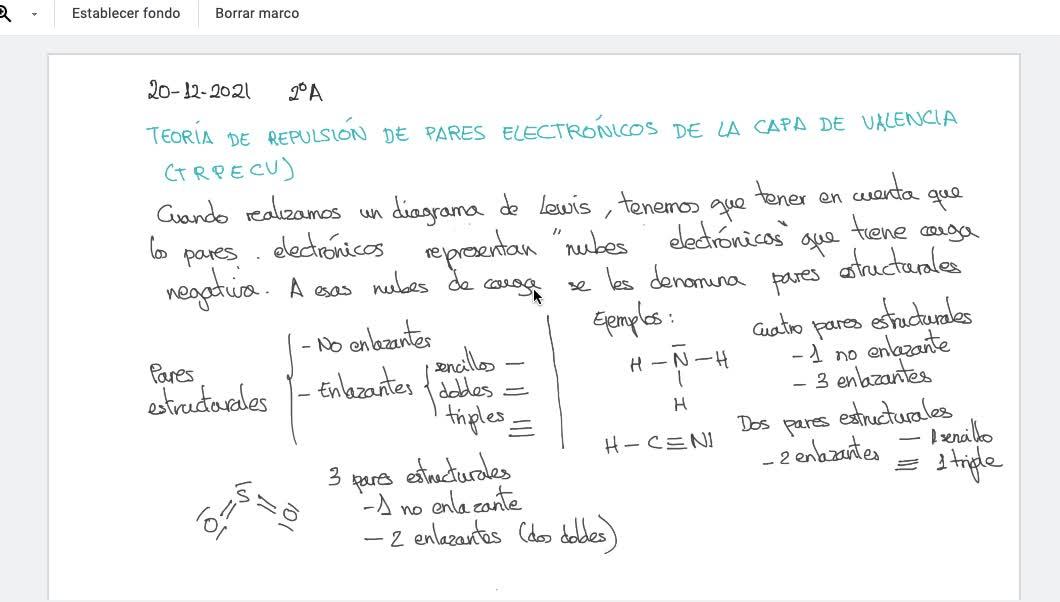 Establecer fondo Borrar marco
20-12-2021 2ºA
TEORÍA DE REPULSIÓN DE PARES ELECTRÓNICOS DE LA CAPA DE VALENCIA
(TRPECV)
Cuando realizamos un diagrama de Lewis, tenemos que tener en cuenta que
los pares electrónicos representan "nubes electrónicas" que tiene carga
negativa. A esas nubes de carga se les denomina pares estructurales
Pares
estructurales
- No enlazantes
- Enlazantes
sencillos —
dobles =
triples ≡
Ejemplos:
H - N - H
|
H
Cuatro pares estructurales
- 1 no enlazante
- 3 enlazantes
H - C ≡ N|
Dos pares estructurales
- 2 enlazantes
— 1 sencillo
≡ 1 triple
O = S = O
3 pares estructurales
- 1 no enlazante
- 2 enlazantes (dos dobles)